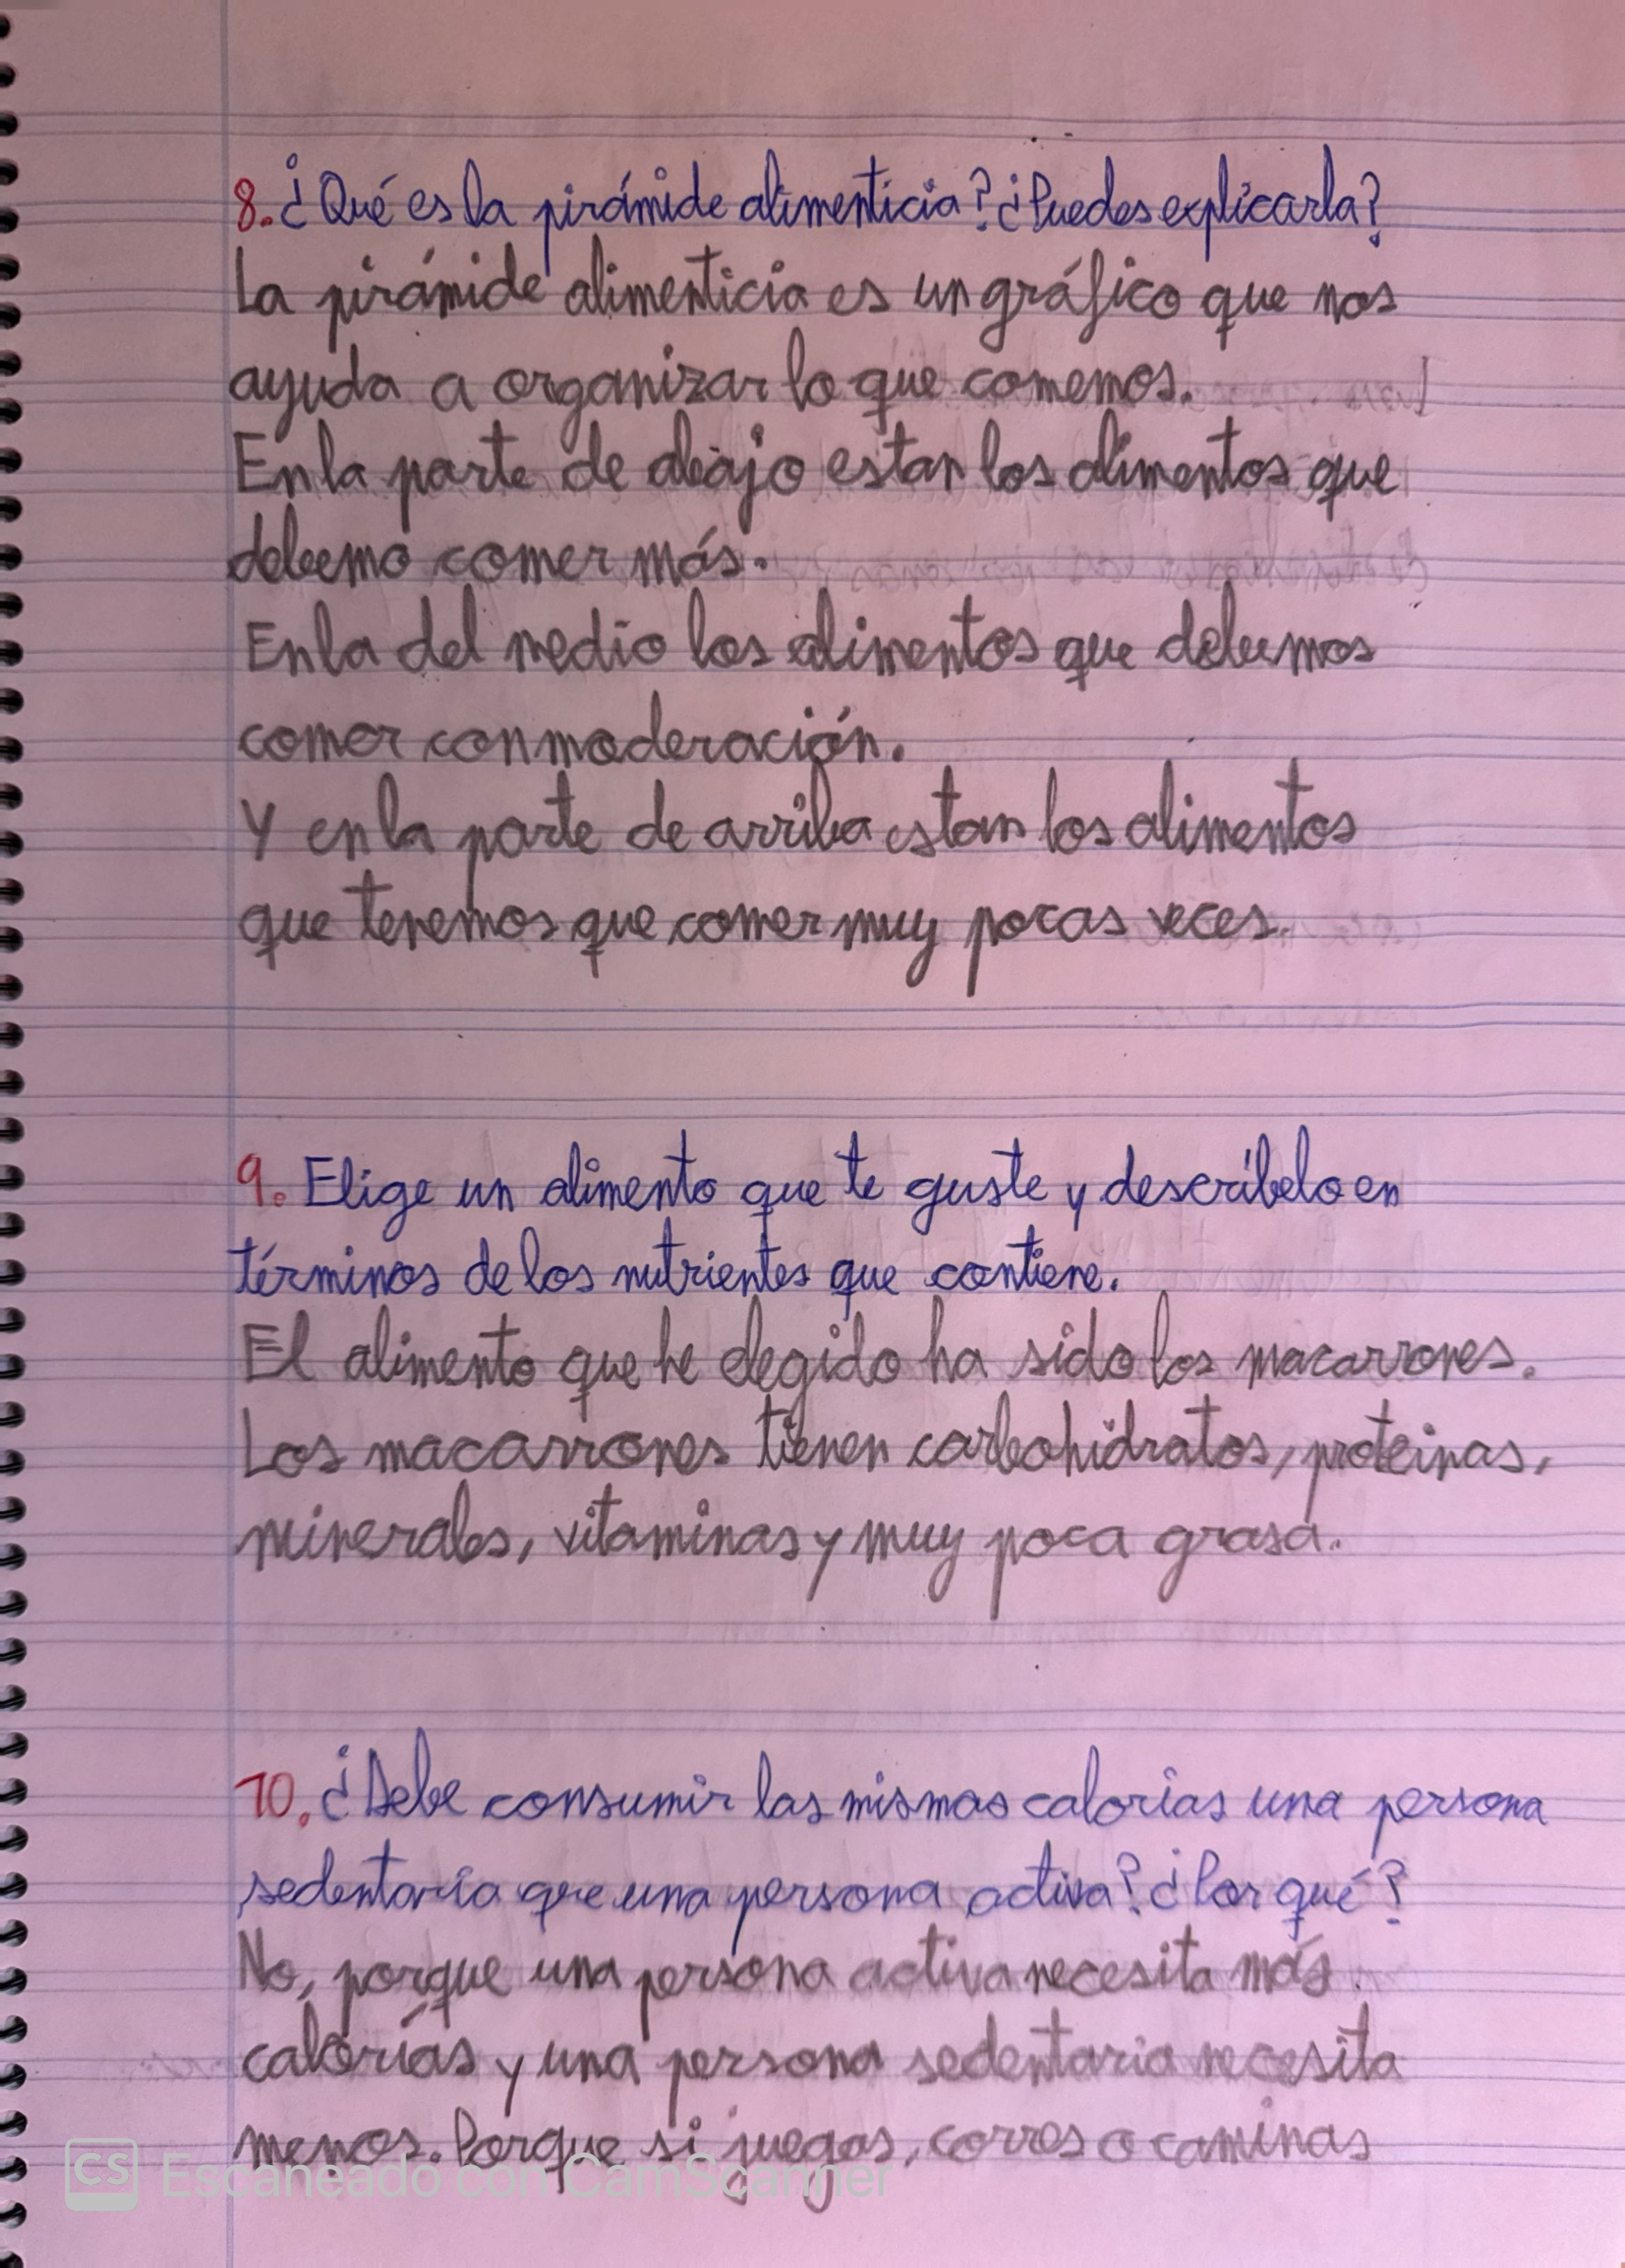 8. ¿Qué es la pirámide alimenticia? ¿Puedes explicarla?
La pirámide alimenticia es un gráfico que nos
ayuda a organizar lo que comemos.
En la parte de abajo estan los alimentos que
debemo comer más.
En la del medio los alimentos que debemos
comer con moderación.
Y en la parte de arriba estan los alimentos
que tenemos que comer muy pocas veces.
9. Elige un alimento que te guste y descríbelo en
términos de los nutrientes que contiene.
El alimento que he elegido ha sido los macarrones.
Los macarrones tienen carbohidratos, proteinas,
minerales, vitaminas y muy poca grasa.
10. ¿Debe consumir las mismas calorias una persona
sedentaria que una persona activa? ¿Por qué?
No, porque una persona activa necesita más
calorías y una persona sedentaria necesita
menos. Porque si juegas, corres o caminas
CS Escaneado con CamScanner